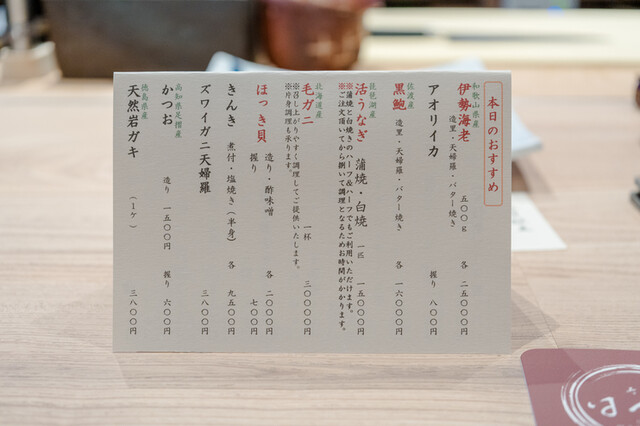 本日のおすすめ
和歌山県産
伊勢海老 五〇〇g 各 二五〇〇〇円
造里・天婦羅・バター焼き
アオリイカ 握り 八〇〇円
佐渡産
黒鮑 造里・天婦羅・バター焼き 各 一六〇〇〇円
琵琶湖産
活うなぎ 蒲焼・白焼 一匹 一五〇〇〇円
※蒲焼と白焼きのハーフ&ハーフでもご利用いただけます。
※ご注文頂いてから捌いて調理となるためお時間がかかります。
北海道産
毛ガニ 一杯 三〇〇〇〇円
※召し上がりやすく調理してご提供いたします。
※片身調理も承ります。
ほっき貝 造り・酢味噌 各 二〇〇〇円
握り 七〇〇円
きんき 煮付・塩焼き(半身) 各 九五〇〇円
ズワイガニ天婦羅 三八〇〇円
高知県足摺産
かつお 造り 一五〇〇円 握り 六〇〇円
徳島県産
天然岩ガキ (1ケ) 三八〇〇円